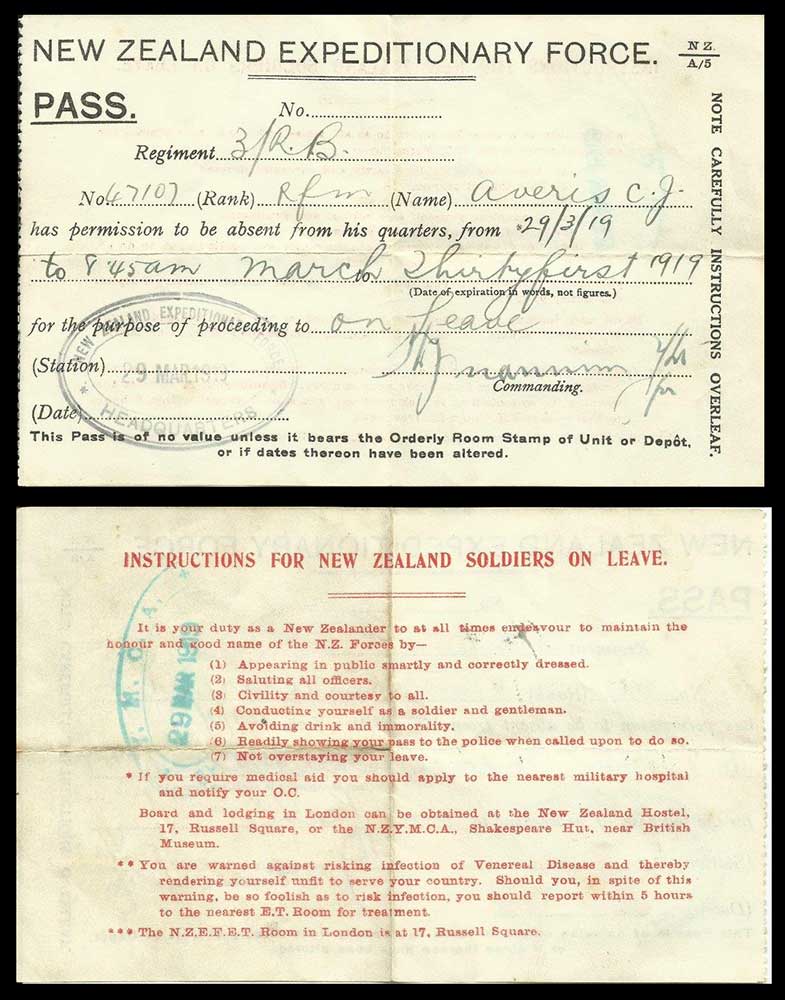 NEW ZEALAND EXPEDITIONARY FORCE.
N Z.
A/5
PASS.
No.
Regiment 3/R.B.
No 47107 (Rank) Rfm (Name) Averis C. J.
has permission to be absent from his quarters, from 29/3/19
to 8 45am March to Thirtyfirst 1919
(Date of expiration in words, not figures.)
for the purpose of proceeding to on Leave
(Station)
Commanding.
(Date)
NEW ZEALAND EXPEDITIONARY FORCE
29 MAR 1919
HEADQUARTERS
This Pass is of no value unless it bears the Orderly Room Stamp of Unit or Depôt,
or if dates thereon have been altered.
NOTE CAREFULLY INSTRUCTIONS OVERLEAF.
INSTRUCTIONS FOR NEW ZEALAND SOLDIERS ON LEAVE.
It is your duty as a New Zealander to at all times endeavour to maintain the
honour and good name of the N.Z. Forces by—
(1) Appearing in public smartly and correctly dressed.
(2) Saluting all officers.
(3) Civility and courtesy to all.
(4) Conducting yourself as a soldier and gentleman.
(5) Avoiding drink and immorality.
(6) Readily showing your pass to the police when called upon to do so.
(7) Not overstaying your leave.
* If you require medical aid you should apply to the nearest military hospital
and notify your O.C.
Board and lodging in London can be obtained at the New Zealand Hostel,
17, Russell Square, or the N.Z.Y.M.C.A., Shakespeare Hut, near British
Museum.
** You are warned against risking infection of Venereal Disease and thereby
rendering yourself unfit to serve your country. Should you, in spite of this
warning, be so foolish as to risk infection, you should report within 5 hours
to the nearest E.T. Room for treatment.
*** The N.Z.E.F.E.T. Room in London is at 17, Russell Square.
Y. M. C. A.
29 MAR 1919